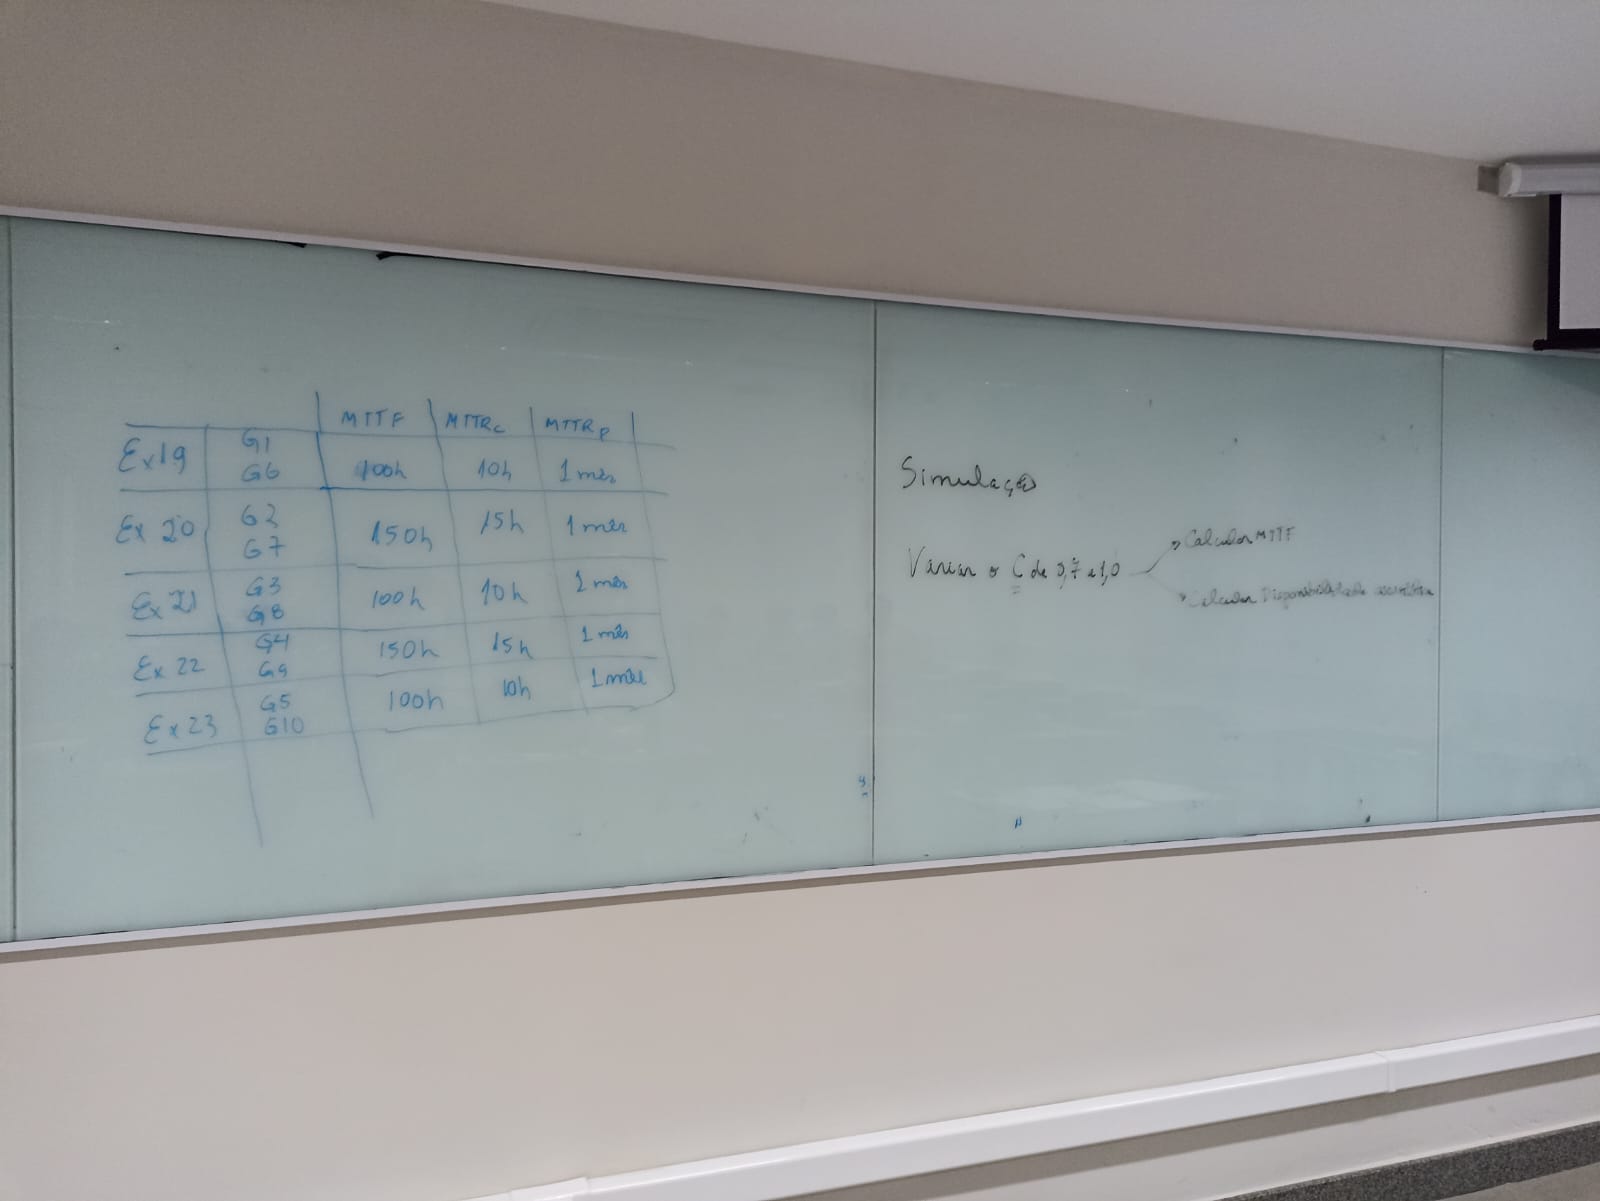 MTTF MTTRc MTTRp
Ex19 G1 G6 100h 10h 1 mês
Ex 20 G2 G7 150h 15h 1 mês
Ex 21 G3 G8 100h 10h 1 mês
Ex 22 G4 G9 150h 15h 1 mês
Ex 23 G5 G10 100h 10h 1 mês
Simulação
Variar o C de 0,7 a 1,0
Calcular MTTF
Calcular Disponibilidade